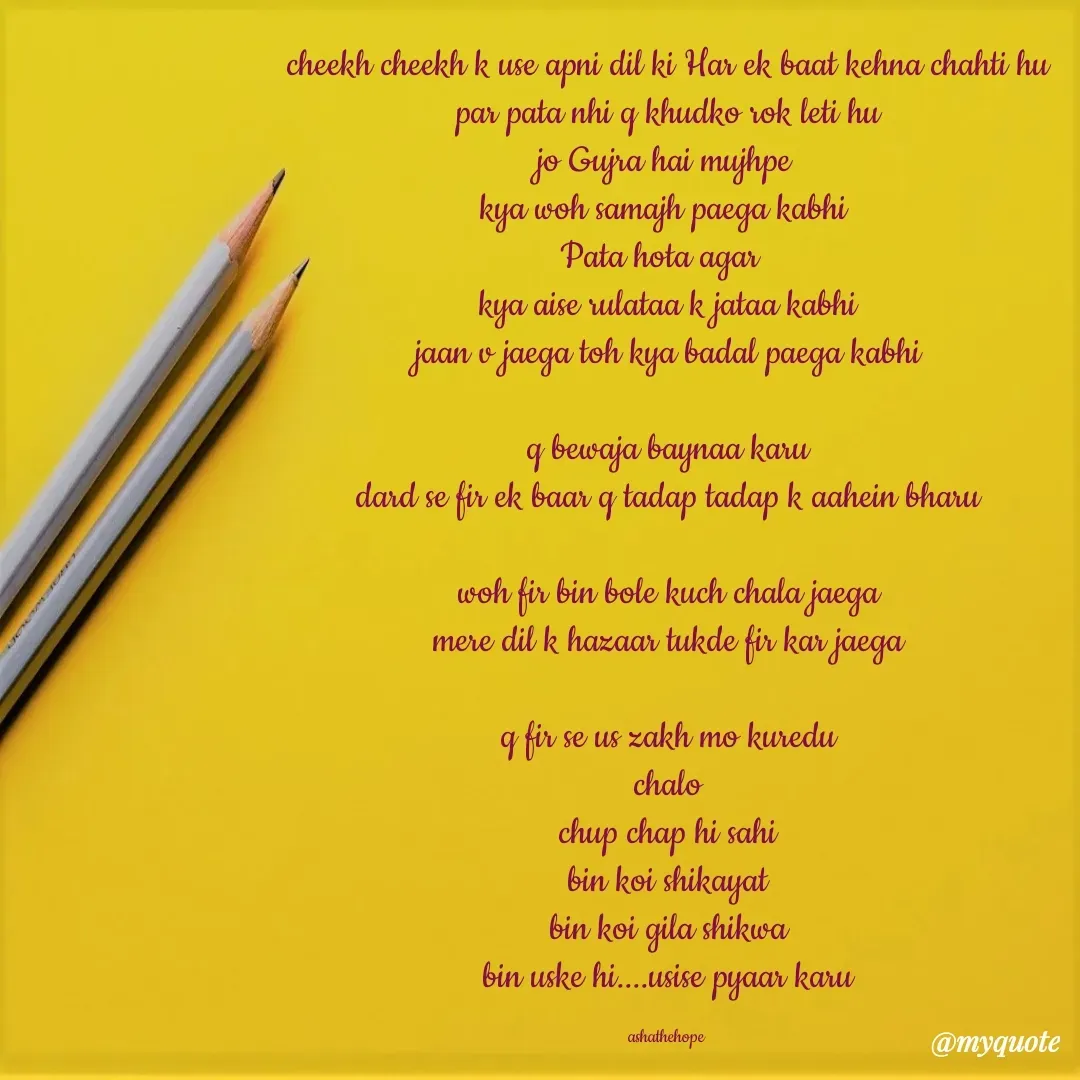 cheekh cheekh k use apni dil ki Har ek baat kehna chahti hu
par pata nhi q khudko rok leti hu
jo Gujra hai mujhpe
kya woh samajh paega kabhi
Pata hota agar
kya aise rulataa k jataa kabhi
jaan v jaega toh kya badal paega kabhi
q bewaja baynaa karu
dard se fir ek baar q tadap tadap k aahein bharu
woh fir bin bole kuch chala jaega
mere dil k hazaar tukde fir kar jaega
q fir se us zakh mo kuredu
chalo
chup chap hi sahi
bin koi shikayat
bin koi gila shikwa
bin uske hi....usise pyaar karu
ashathehope
@myquote